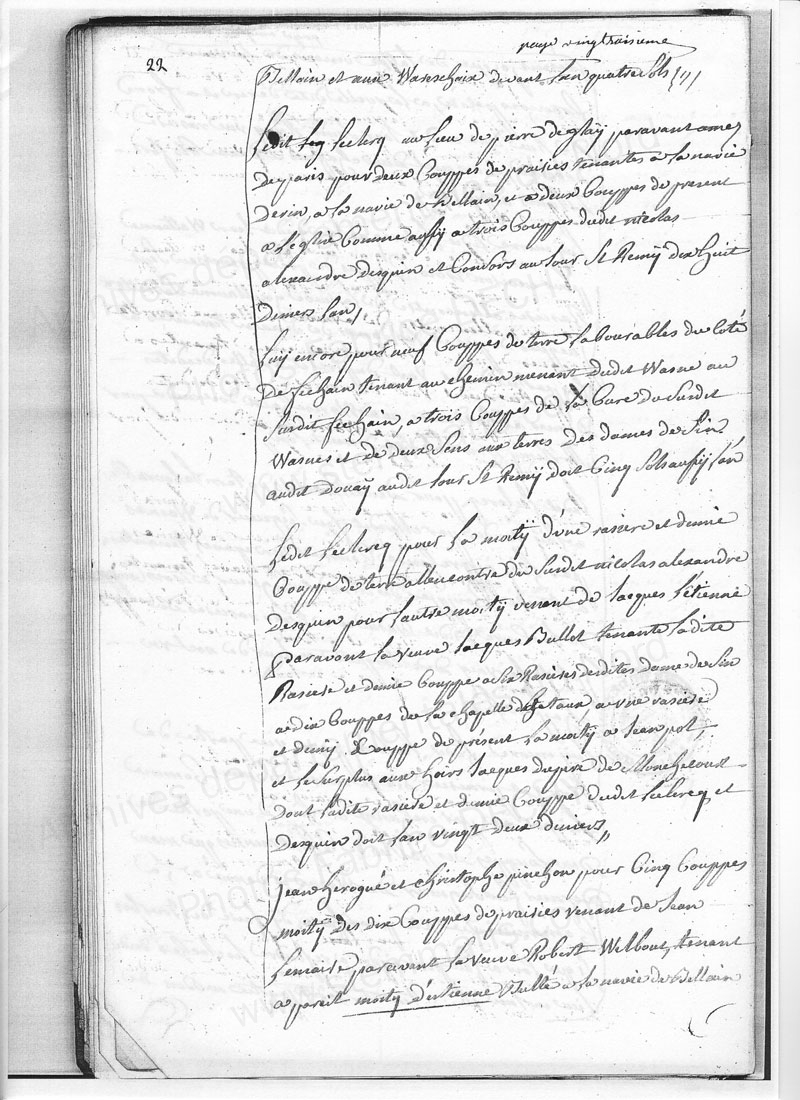 page vingtroisieme
22
Bellain et aux Wareschaix devant L'an quatre sols
Ledit Leclercq au lieu de pierre de glaÿ paravant ame
De paris pour deux Couppes de prairies tenantes a la navie
De sin, a la navie de Bellain, et a deux Couppes de present
a L'eglise Comme aussy a trois Couppes dudit nicolas
alexandre Desquin et Consors au Jour St Remÿ dix huit
Deniers L'an
Luÿ encore pour neuf Couppes de terre Labourables du Coté
De fechain tenant au chemin menant dudit Wasne au
Susdit fechain, a trois Couppes de La Cure du Susdit
Wasnes et de deux Sens aux terres des dames de Sin
audit Douaÿ audit Jour St Remÿ doit Cinq Sols aussÿ L'an
Ledit Leclercq pour La moitÿ d'une rasiere et demie
Couppe de terre allencontre du Susdit nicolas alexandre
Desquin pour L'autre moitÿ venant de Jacques L'etienne
paravant La veuve Jacques Bullot tenante Ladite
Rasiere et demie Couppe a Six Rasieres desdites dame de Sin
a dix Couppes de la chapelle a une rasiere
et demÿ Couppe de présent La moitÿ a Jean pot,
et Le Surplus aux hoirs Jacques dupire de Monchecourt
Dont Ladite rasiere et demie Couppe dudit Leclercq et
Desquin doit L'an vingt deux deniers
Jean herogué et christophe pinchon pour Cinq Couppes
moitÿ des dix Couppes de prairies venant de Jean
Lemaire paravant La veuve Robert Welbout, tenant
a pareit moitÿ d'estienne Bullé a la navie de Bellain